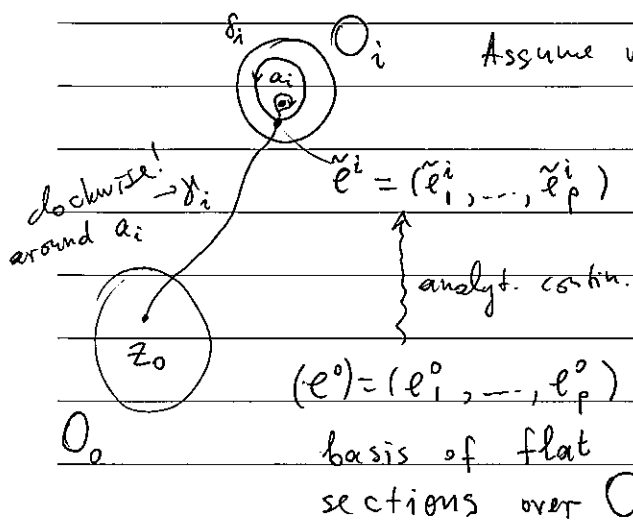 δ_i O_i Assume
a_i
ẽ^i = (ẽ^i_1, ..., ẽ^i_p)
clockwise! → γ_i
around a_i
analyt. contin.
z_0
(e^0) = (e^0_1, ..., e^0_p)
O_0 basis of flat
sections over O